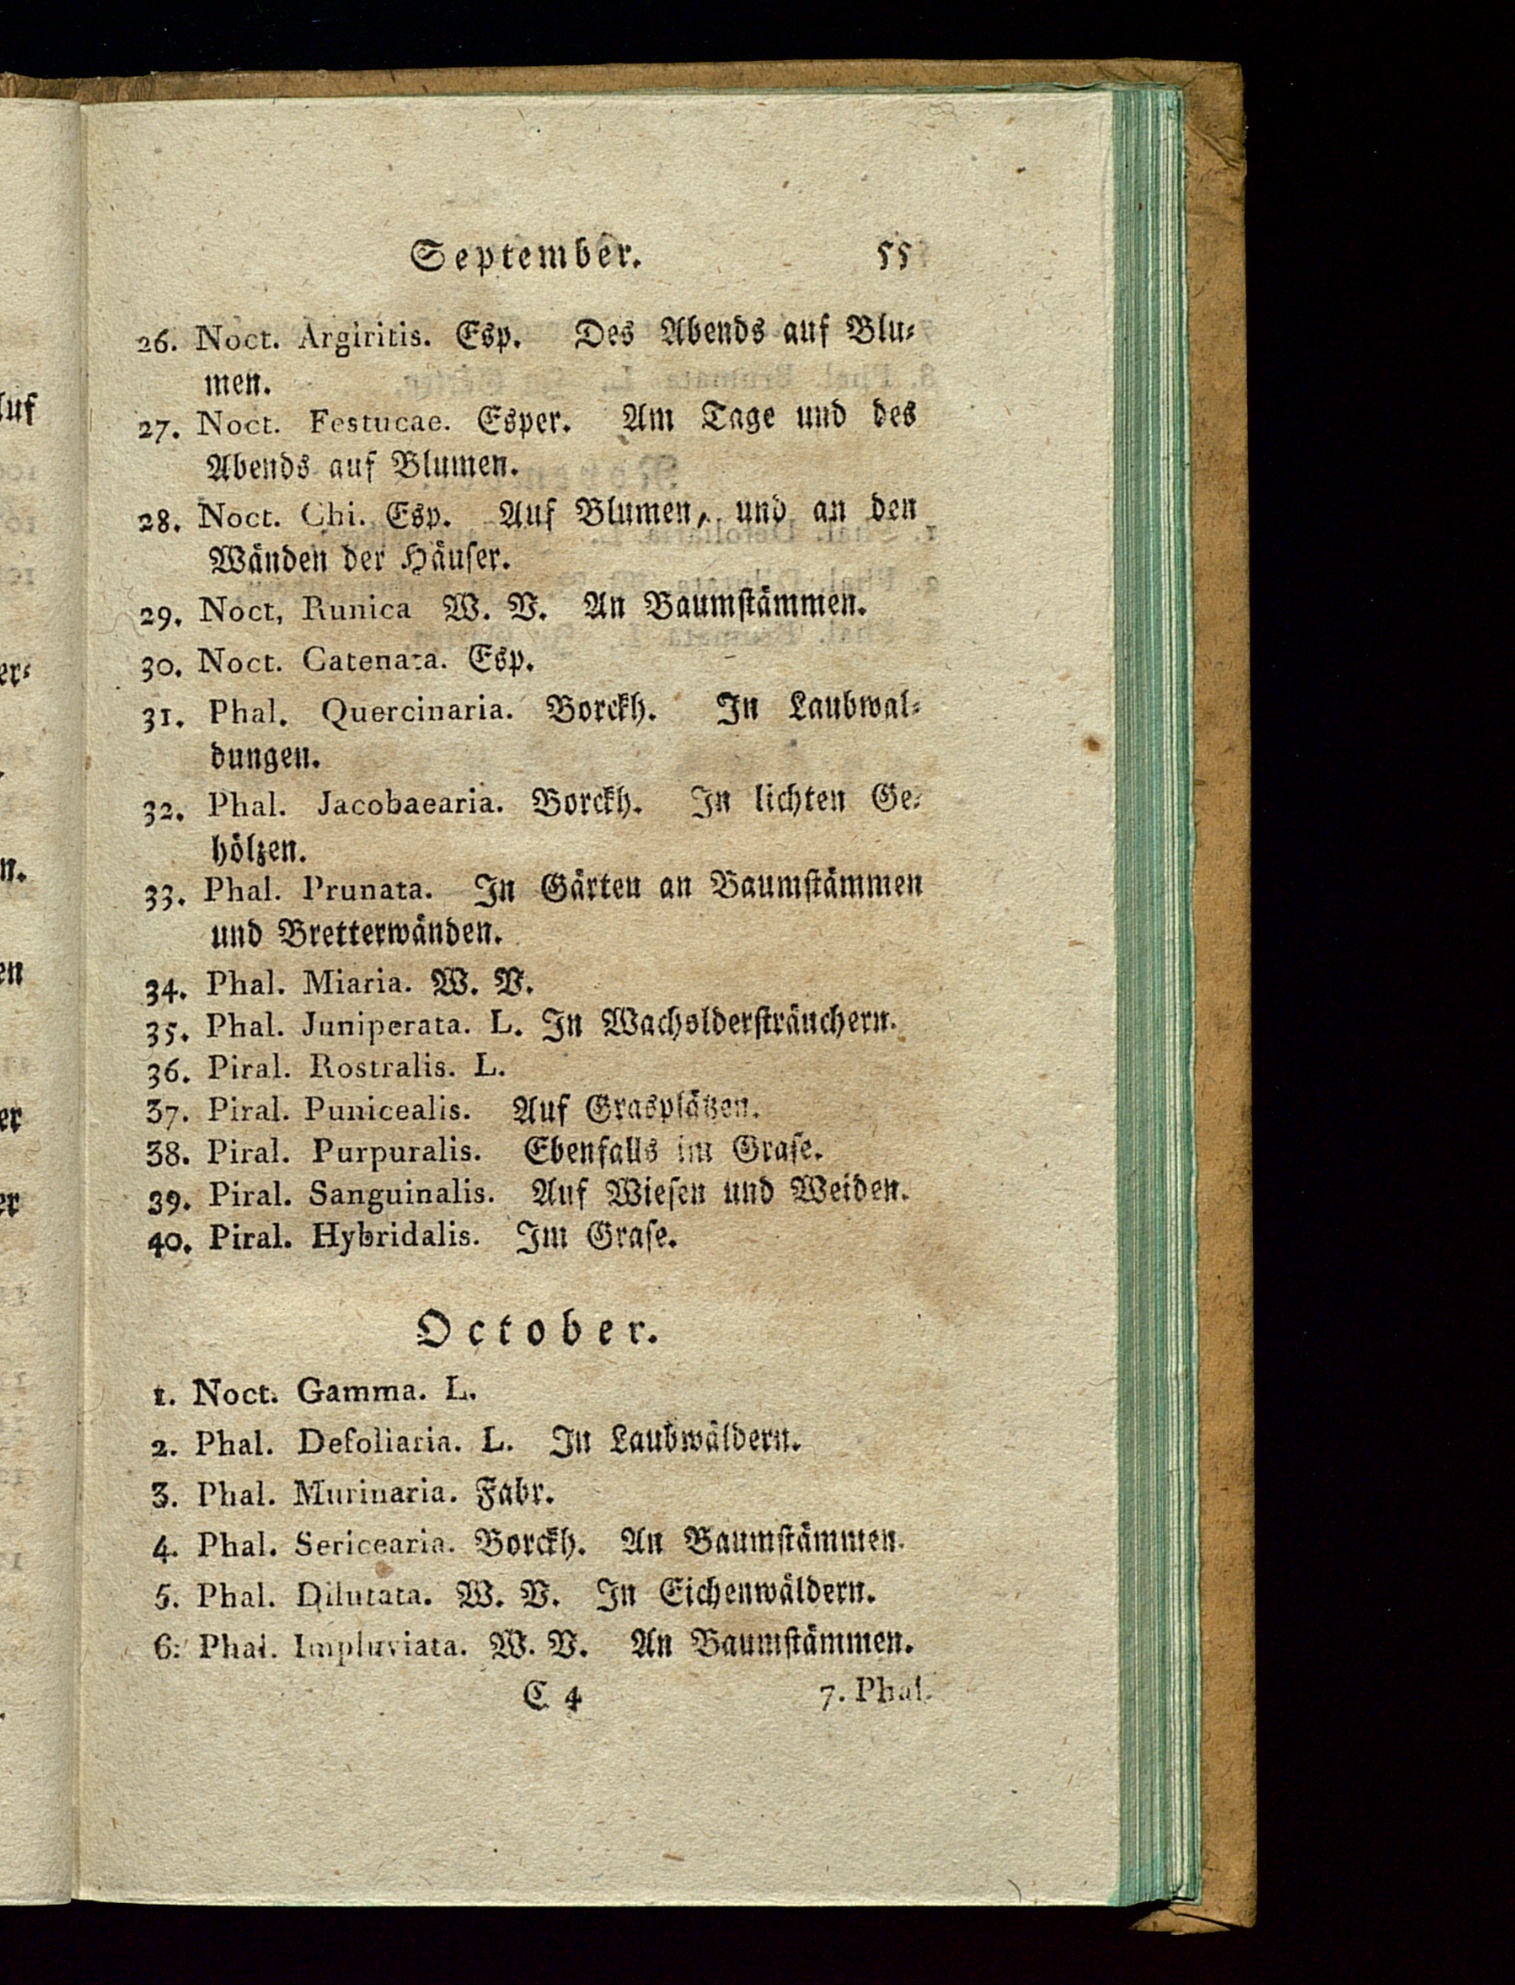 September. 55
26. Noct. Argiritis. Esp. Des Abends auf Blu⸗
men.
27. Noct. Festucae. Esper. Am Tage und des
Abends auf Blumen.
28. Noct. Chi. Esp. Auf Blumen, und an den
Wänden der Häuſer.
29. Noct, Runica W. V. An Baumſtämmen.
30. Noct. Catenata. Esp.
31. Phal. Quercinaria. Borckh. In Laubwal⸗
dungen.
32. Phal. Jacobaearia. Borckh. In lichten Ge⸗
hölzen.
33. Phal. Prunata. In Gärten an Baumſtämmen
und Bretterwänden.
34. Phal. Miaria. W. V.
35. Phal. Juniperata. L. In Wacholderſträuchern.
36. Piral. Rostralis. L.
37. Piral. Punicealis. Auf Grasplätzen.
38. Piral. Purpuralis. Ebenfalls im Graſe.
39. Piral. Sanguinalis. Auf Wieſen und Weiden.
40. Piral. Hybridalis. Im Graſe.
October.
1. Noct. Gamma. L.
2. Phal. Defoliaria. L. In Laubwäldern.
3. Phal. Murinaria. Fabr.
4. Phal. Sericearia. Borckh. An Baumſtämmen.
5. Phal. Dilutata. W. V. In Eichenwäldern.
6. Phal. Impluviata. W. V. An Baumſtämmen.
C 4 7. Phal.